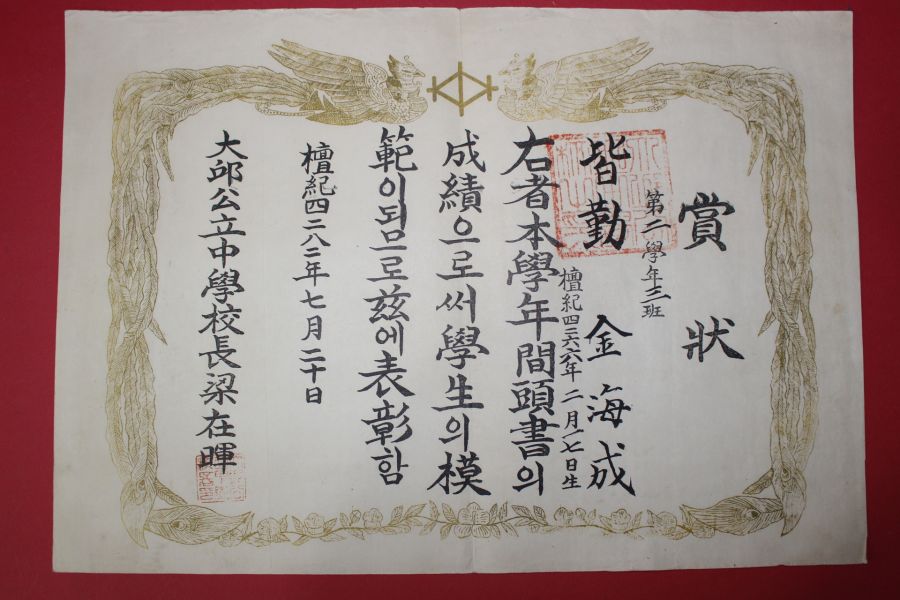 賞狀
第二學年三班
皆勤 金海成
檀紀四二六六年二月一七日生
右者本學年間頭書의
成績으로써學生의模
範이되므로玆에表彰함
檀紀四二八二年七月二十日
大邱公立中學校長梁在暉